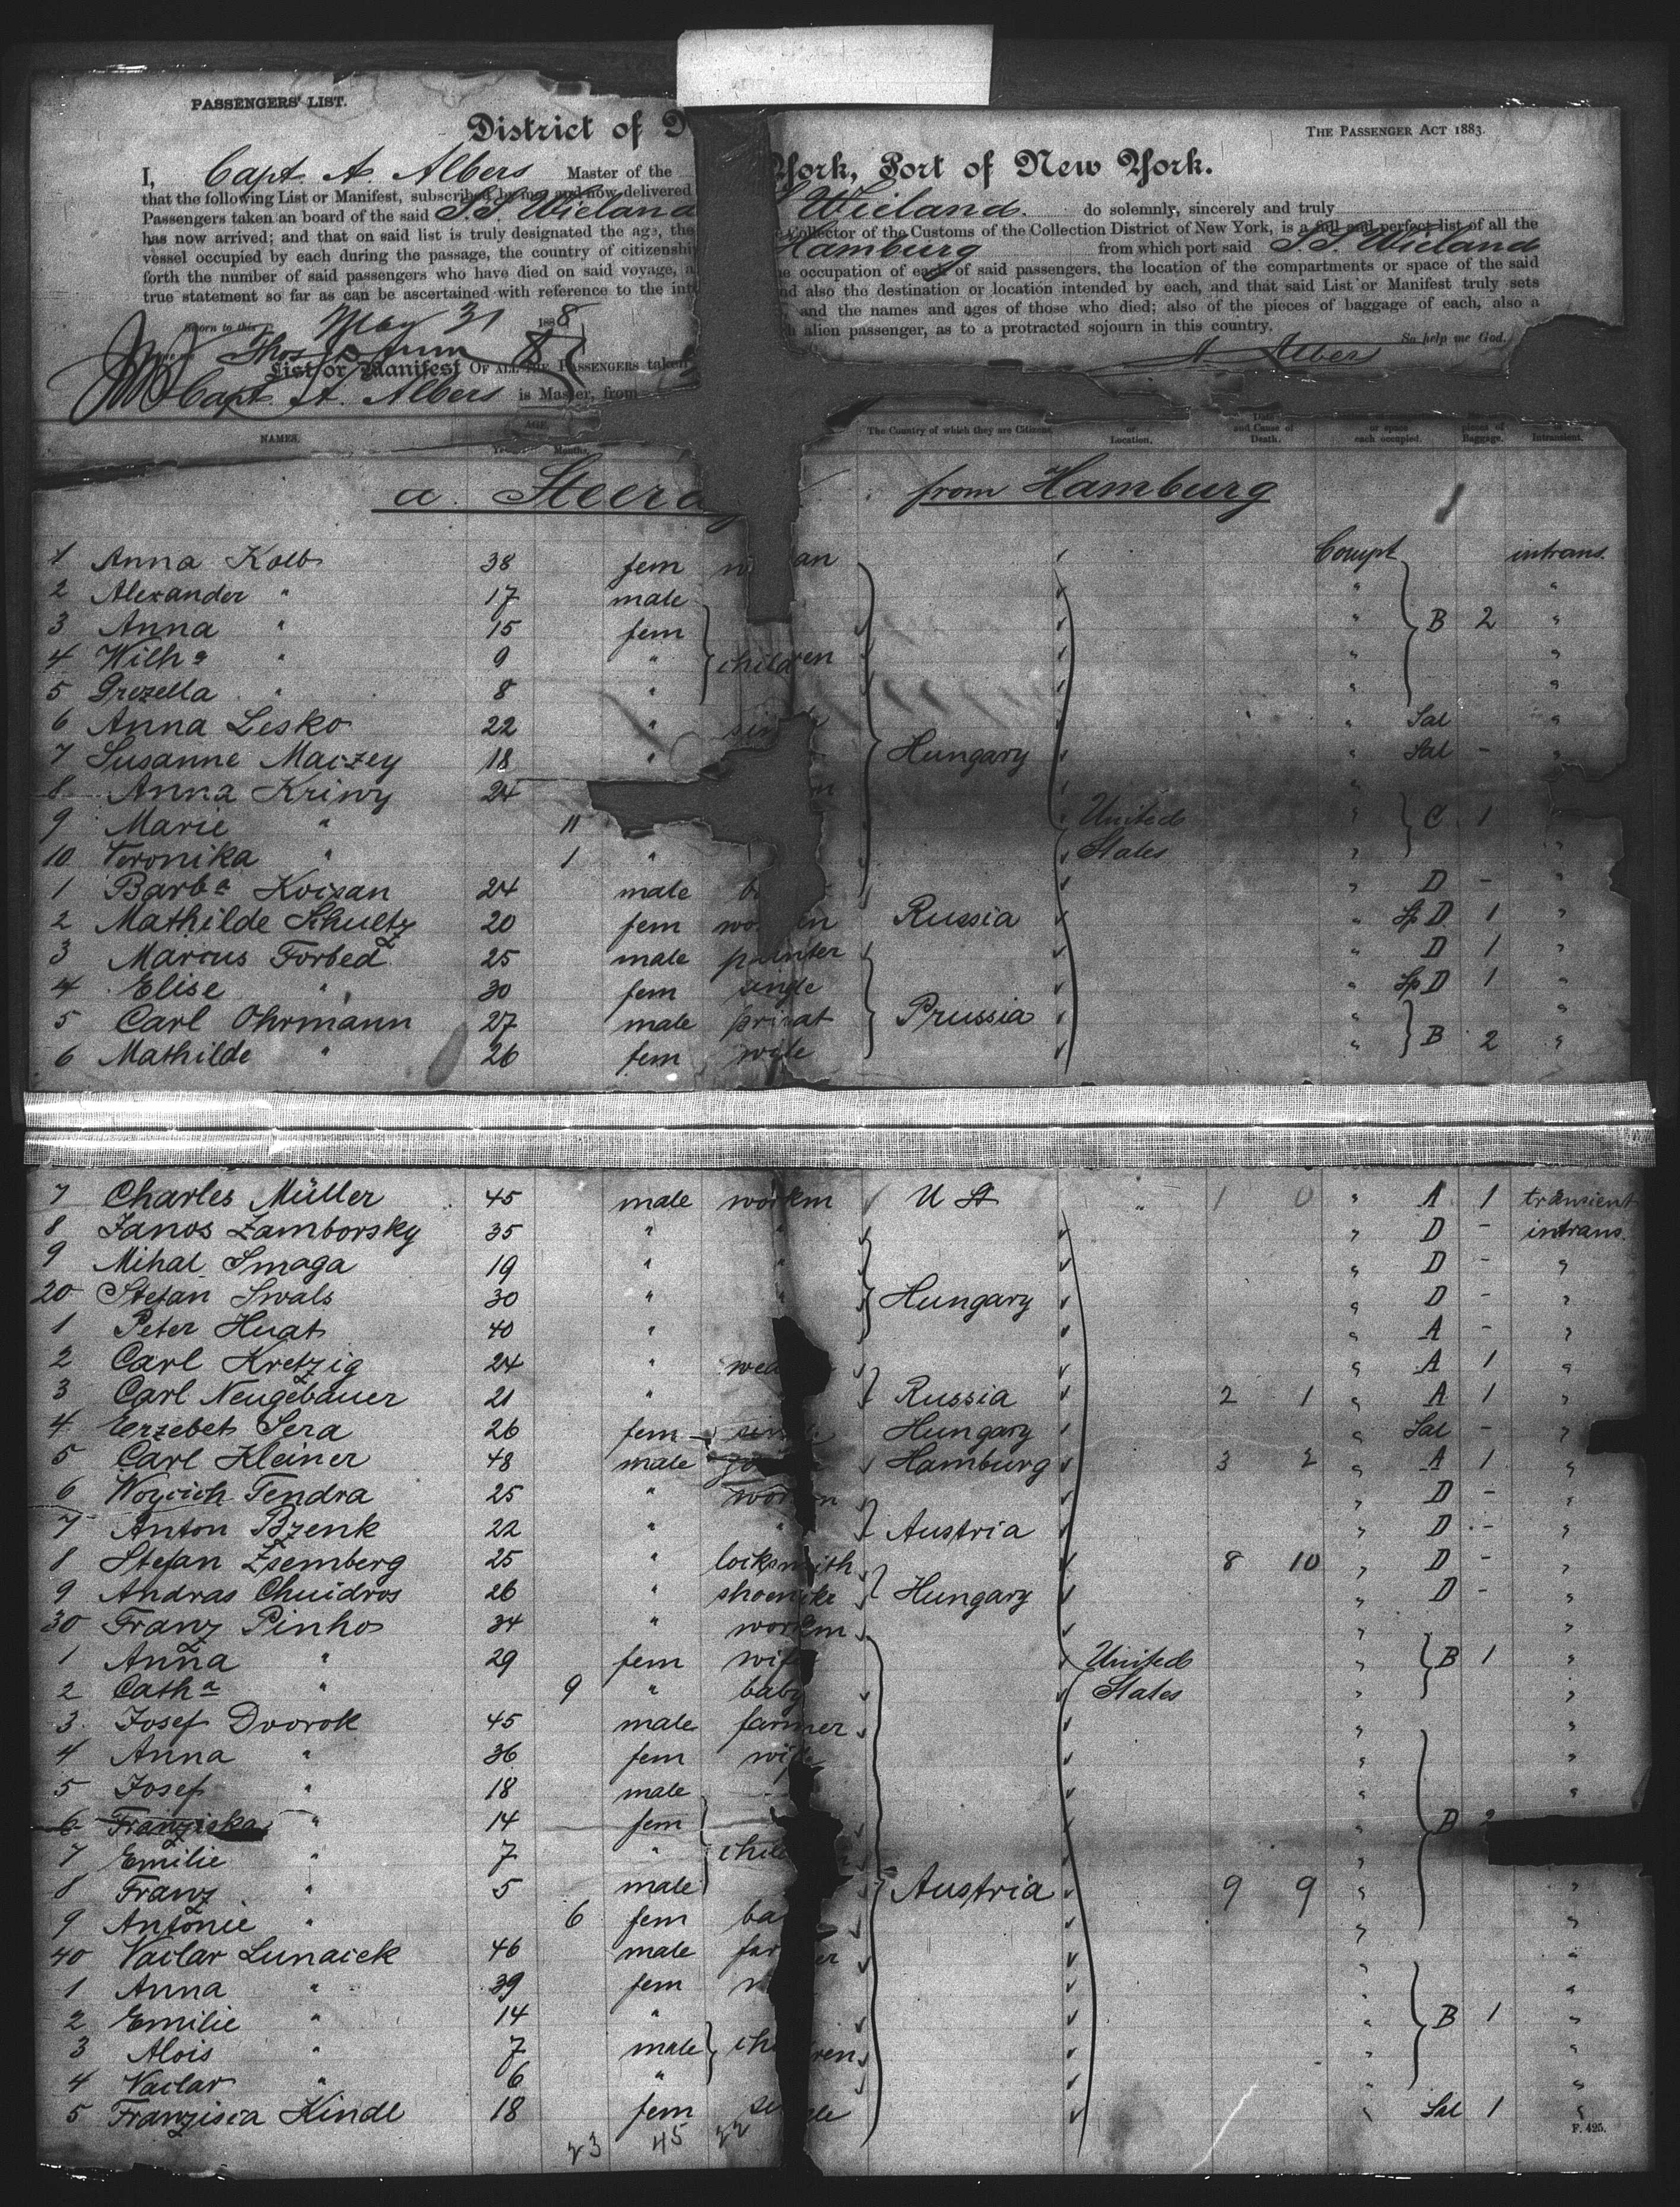 PASSENGERS' LIST.
THE PASSENGER ACT 1883.
District of York, Port of New York.
I, Capt. A. Albers Master of the Wieland. do solemnly, sincerely and truly
that the following List or Manifest, subscribed by me, and now delivered Collector of the Customs of the Collection District of New York, is a full and perfect list of all the
Passengers taken on board of the said S.S. Wieland Hamburg from which port said S.S. Wieland
has now arrived; and that on said list is truly designated the age, the occupation of each of said passengers, the location of the compartments or space of the said
vessel occupied by each during the passage, the country of citizenship and also the destination or location intended by each, and that said List or Manifest truly sets
forth the number of said passengers who have died on said voyage, and the names and ages of those who died; also of the pieces of baggage of each, also a
true statement so far as can be ascertained with reference to the alien passenger, as to a protracted sojourn in this country.
Sworn to this May 31 1888 So help me God.
Thos A. Albers
List or Manifest OF ALL THE PASSENGERS taken
Capt. A. Albers is Master, from
NAMES. AGE. Years Months. The Country of which they are Citizens. or Location. Date and Cause of Death. or space each occupied. pieces of Baggage. Intransient.
a. Steera from Hamburg
1 Anna Kolb 38 fem an Compt intrans.
2 Alexander " 17 male " "
3 Anna " 15 fem " B 2 "
4 Wilhª " 9 " children " "
5 Grezella " 8 " " "
6 Anna Lesko 22 " " Sal "
7 Susanne Maczey 18 " Hungary " Sal - "
8 Anna Kriwy 24 "
9 Marie " 11 United " C 1
10 Veronika " 1 " States " "
1 Barbª Koisan 24 male " D - "
2 Mathilde Schultz 20 fem Russia " Sp D 1 "
3 Marcus Forbed 25 male painter " D 1 "
4 Elise " 30 fem single " Sp D 1 "
5 Carl Ohrmann 27 male privat Prussia " "
6 Mathilde " 26 fem wife " B 2 "
7 Charles Müller 45 male workm U St " 1 0 " A 1 transient
8 Janos Zamborsky 35 " " " D - intrans.
9 Mihal Smaga 19 " " " D - "
20 Stefan Swals 30 " " Hungary " D - "
1 Peter Huat 40 " " A - "
2 Carl Kretzig 24 " " A 1 "
3 Carl Neugebauer 21 " Russia 2 1 " A 1 "
4 Erzebet Sera 26 fem single Hungary " Sal - "
5 Carl Kleiner 48 male Hamburg 3 2 " A 1 "
6 Woycich Tendra 25 " " D - "
7 Anton Bzenk 22 " " Austria " D - "
8 Stefan Zsemberg 25 " locksmith 8 10 " D - "
9 Andras Chuidros 26 " shoemke Hungary " D - "
30 Franz Pinhos 34 " workm " "
1 Anna " 29 fem wife United " B 1 "
2 Cathª " 9 " baby States " "
3 Josef Dvorok 45 male farmer " "
4 Anna " 36 fem wife " "
5 Josef " 18 male " "
6 Franziska " 14 fem " B 2
7 Emilie " 7 " "
8 Franz " 5 male Austria 9 9 " "
9 Antonie " 6 fem " "
40 Vaclav Lunacek 46 male farmer "
1 Anna " 39 fem " "
2 Emilie " 14 " " B 1 "
3 Alois " 7 male children " "
4 Vaclav " 6 " " "
5 Franzisca Kindl 18 fem single " Sal 1 "
23 45 22
F. 425.